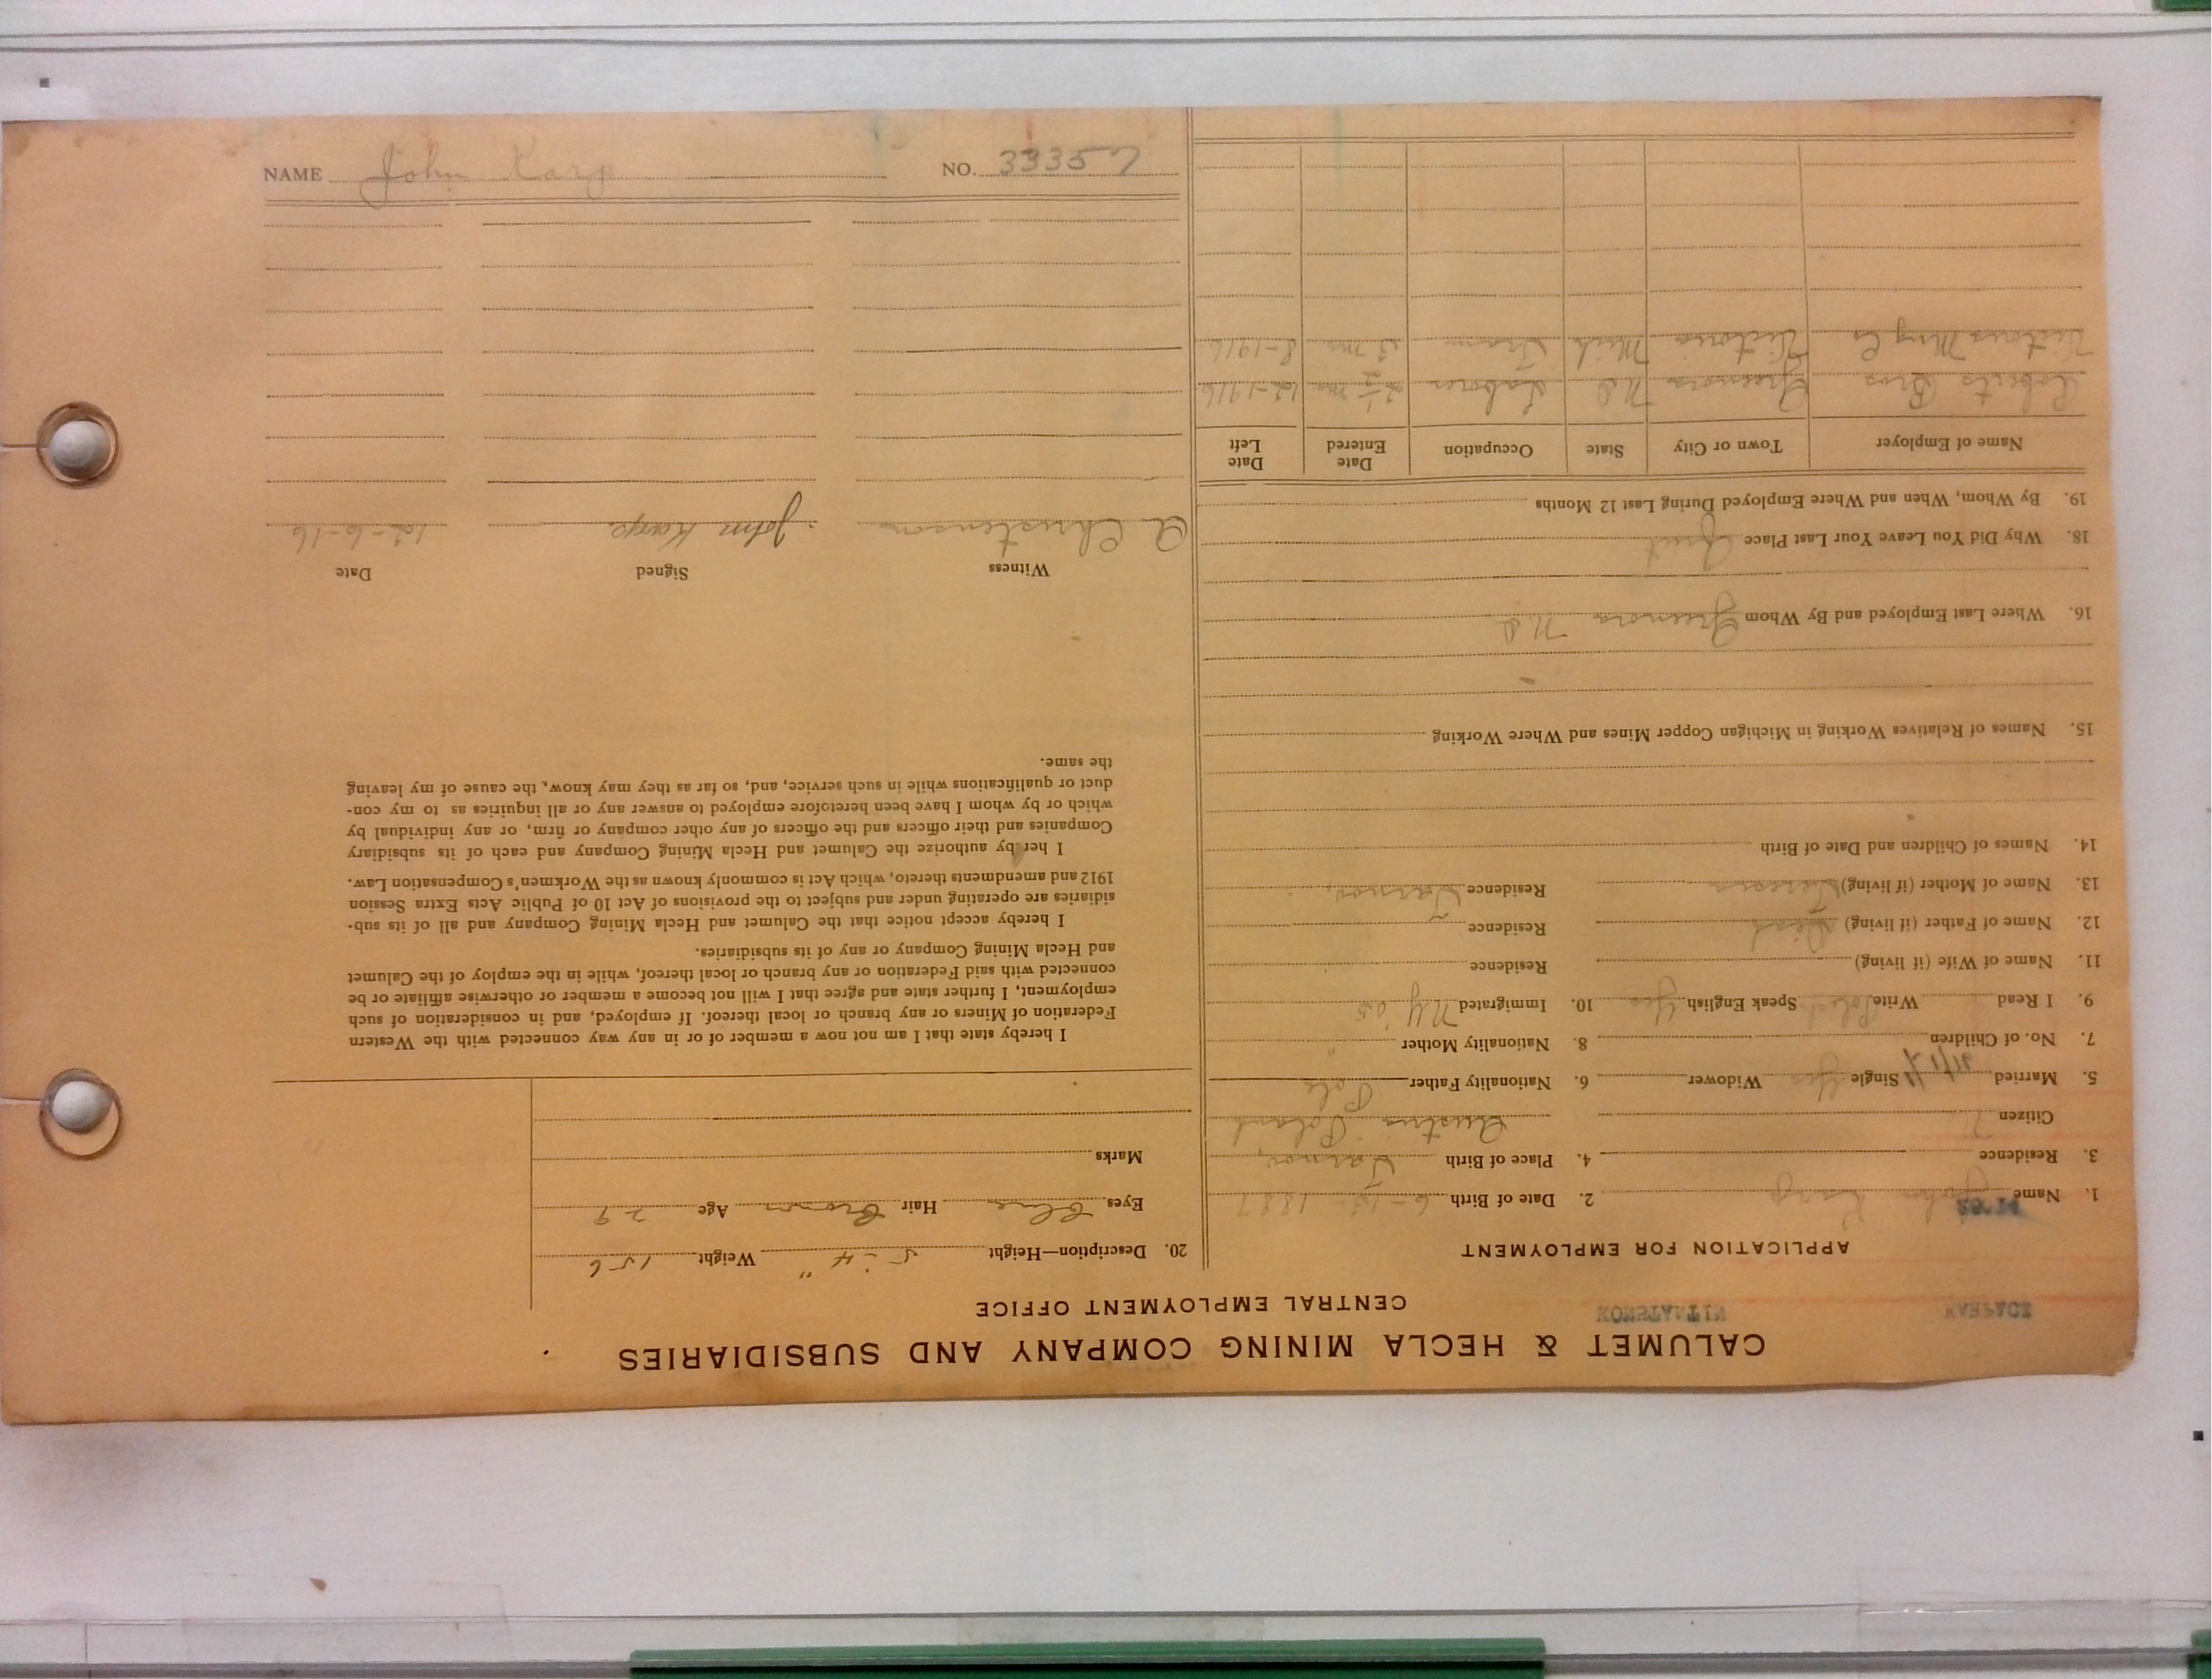 CALUMET & HECLA MINING COMPANY AND SUBSIDIARIES
KARPACZ KONSTANTIN
CENTRAL EMPLOYMENT OFFICE
APPLICATION FOR EMPLOYMENT
1. Name John Karp 2. Date of Birth 6-12-1887
3. Residence 4. Place of Birth Tarnov,
Citizen Austria Poland
5. Married Single Yes Widower 6. Nationality Father Pole
7. No. of Children 8. Nationality Mother "
9. I Read Write Polish Speak English Yes 10. Immigrated N.Y. '05
11. Name of Wife (if living) Residence
12. Name of Father (if living) Dead Residence
13. Name of Mother (if living) Residence Tarnov,
14. Names of Children and Date of Birth
15. Names of Relatives Working in Michigan Copper Mines and Where Working
16. Where Last Employed and By Whom Grenora N.D
18. Why Did You Leave Your Last Place Quit
19. By Whom, When and Where Employed During Last 12 Months
Name of Employer Town or City State Occupation Date Entered Date Left
Roberts Bros Grenora N.D Laborer 2½ mo 12-1916
Victoria Mng Co Victoria Mich Tram 3 mo 8-1916
20. Description—Height 5'-4" Weight 156
Eyes Blue Hair Brown Age 29
Marks
I hereby state that I am not now a member of or in any way connected with the Western
Federation of Miners or any branch or local thereof. If employed, and in consideration of such
employment, I further state and agree that I will not become a member or otherwise affiliate or be
connected with said Federation or any branch or local thereof, while in the employ of the Calumet
and Hecla Mining Company or any of its subsidiaries.
I hereby accept notice that the Calumet and Hecla Mining Company and all of its sub-
sidiaries are operating under and subject to the provisions of Act 10 of Public Acts Extra Session
1912 and amendments thereto, which Act is commonly known as the Workmen's Compensation Law.
I hereby authorize the Calumet and Hecla Mining Company and each of its subsidiary
Companies and their officers and the officers of any other company or firm, or any individual by
which or by whom I have been heretofore employed to answer any or all inquiries as to my con-
duct or qualifications while in such service, and, so far as they may know, the cause of my leaving
the same.
Witness Signed Date
A Christenson John Karp 12-6-16
NAME John Karp NO. 33357